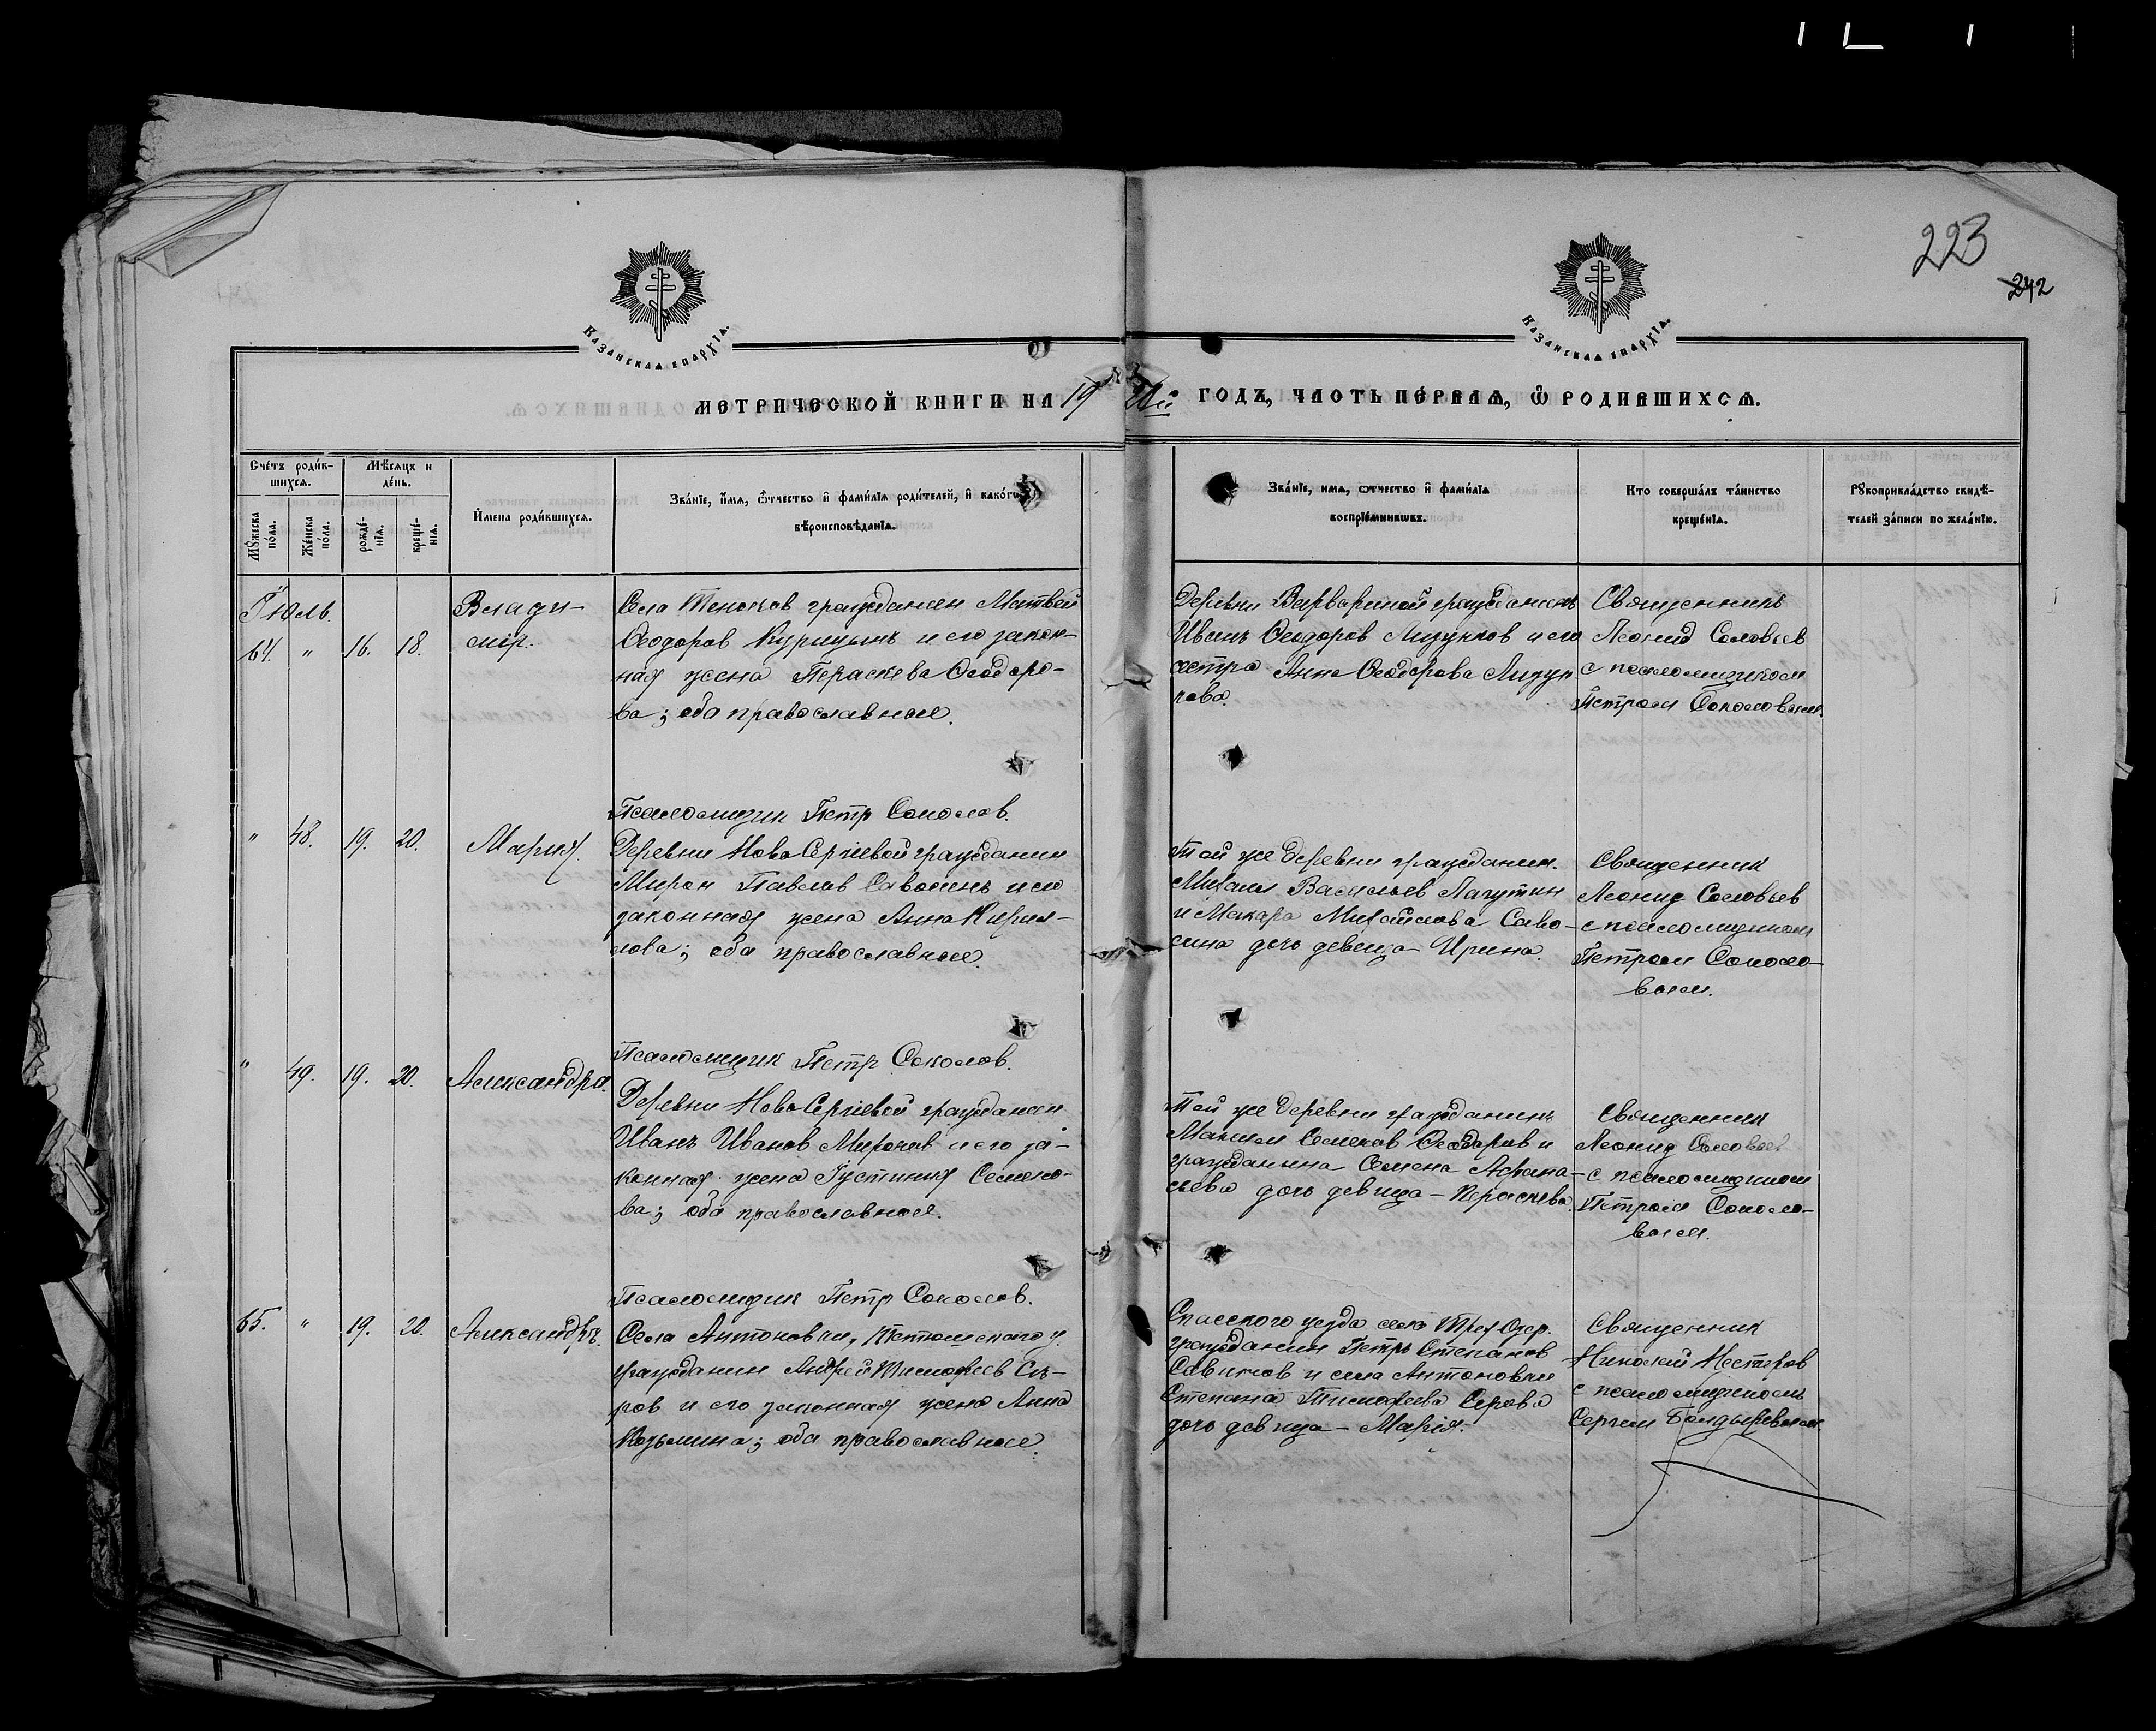 223
242
Казанская епархїа.
Казанская епархїа.
Метрической книги на 19 20й годъ, часть первая, ѡ родившихся.
Счетъ родив-
шихся.
Мѣсяцъ и
день.
Мужеска
пола.
Женска
пола.
рожде-
нїа.
креще-
нїа.
Имена родившихся.
Званїе, имя, ѿчество и фамилїа родителей, и какого
вѣроисповѣданїа.
Званїе, имя, ѿчество и фамилїа
воспрїемниковъ.
Кто совершалъ таинство
крещенїа.
Рукоприкладство свидѣ-
телей записи по желанїю.
Іюль.
64. " 16. 18.
Влади-
мір.
Села Теньков гражданин Матвей
Феодоров Курицынъ и его закон-
ная жена Параскева Феодоро-
ва; оба православные.
Деревни Варвариной гражданинъ
Иванъ Феодоров Лизунков и его
сестра Анна Феодорова Лизун-
кова.
Священникъ
Леонид Соловьев
с псаломщиком
Петром Соколовым.
Псаломщик Петр Соколов.
" 48. 19. 20.
Мария.
Деревни Ново Сергіевой гражданин
Мирон Павлов Савосинъ и его
законная жена Анна Кирил-
лова; оба православные.
Той же деревни гражданин
Михаил Васильев Лагутин
и Макара Михайлова Саво-
сина дочь девица – Ирина.
Священник
Леонид Соловьев
с псаломщиком
Петром Соколо-
вым.
Псаломщик Петр Соколов.
" 49. 19. 20.
Александра.
Деревни Ново Сергіевой гражданин
Иванъ Иванов Миронов и его за-
конная жена Іустиния Семено-
ва; оба православные.
Той же деревни гражданинъ
Максим Семенов Феодоров и
гражданина Семена Афана-
сьева дочь девица – Параскева.
Священник
Леонид Соловьев
с псаломщиком
Петром Соколо-
вым.
Псаломщик Петр Соколов.
65. " 19. 20.
Александръ.
Села Антоновки, Тетюшского у.
гражданин Андрей Тимофеев Сѣ-
ров и его законная жена Анна
Козьмина; оба православные.
Спасского уезда села Трех Озер
гражданин Петръ Степанов
Савинов и села Антоновки
Степана Тимофеева Серова
дочь девица – Марія.
Священник
Николай Нестеров
с псаломщиком
Сергеем Болдыревым.